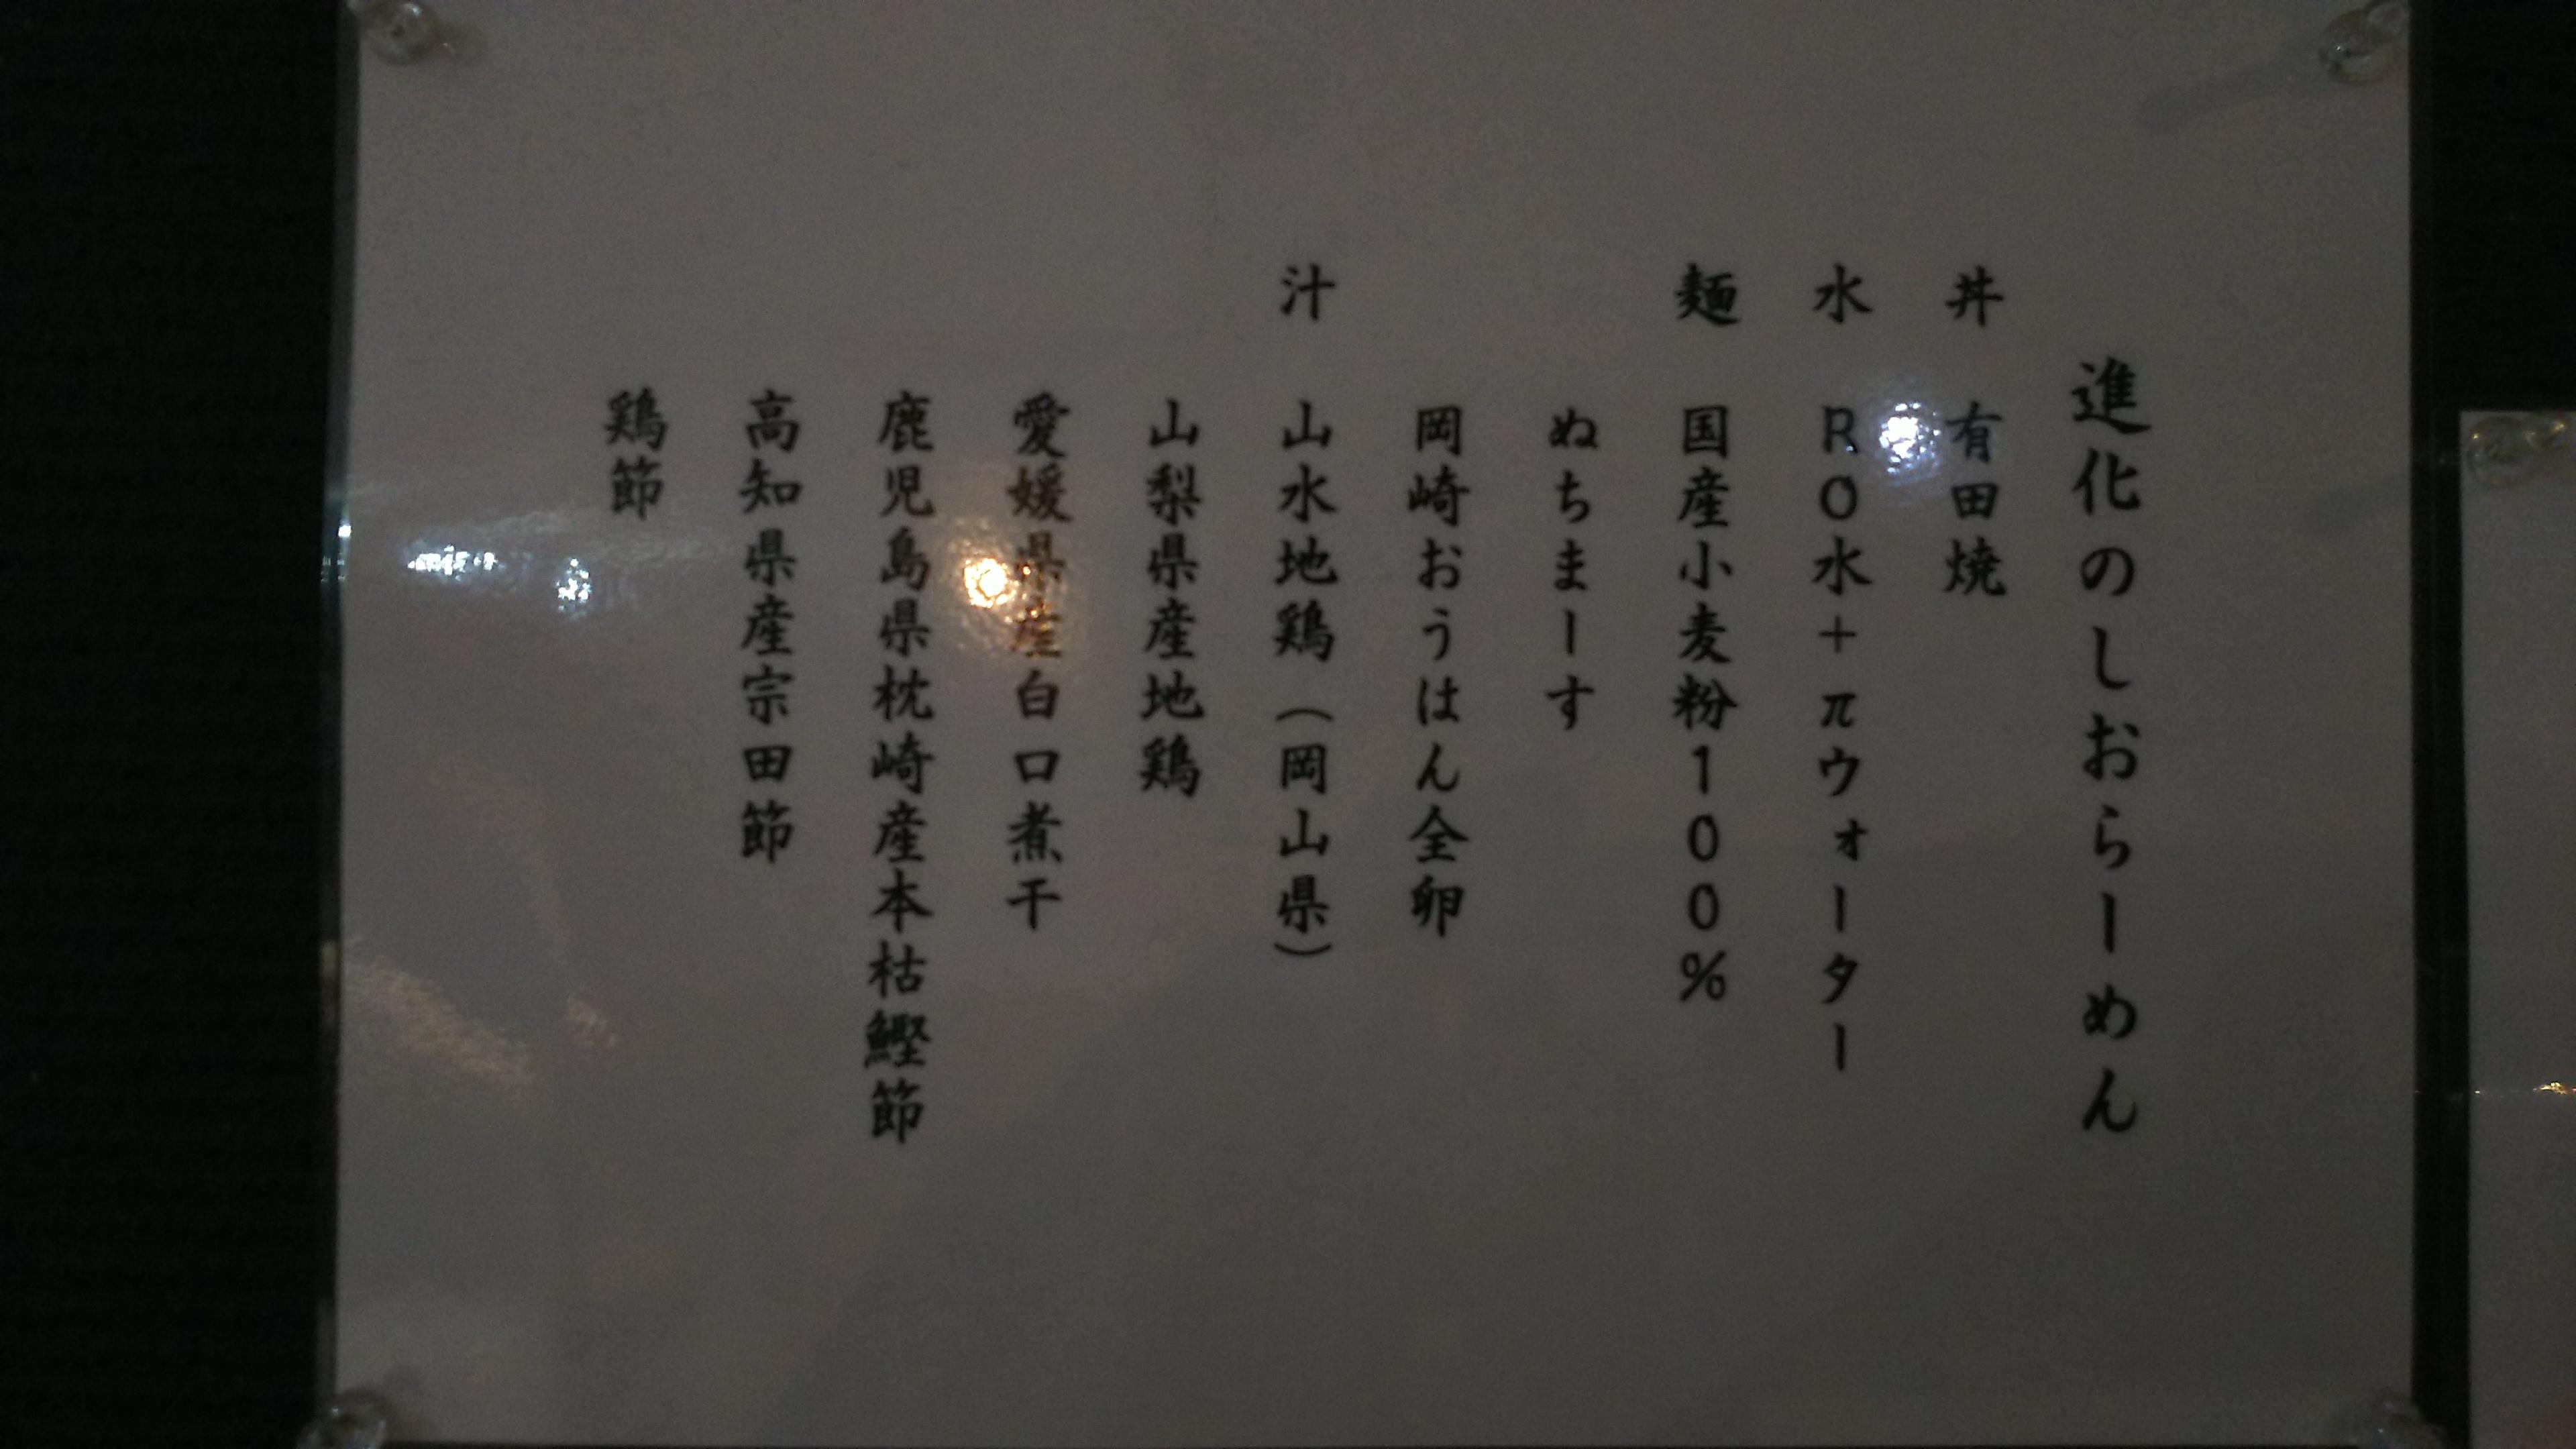 進化のしおらーめん
丼 有田焼
水 RO水+πウォーター
麺 国産小麦粉100%
ぬちまーす
岡崎おうはん全卵
汁 山水地鶏(岡山県)
山梨県産地鶏
愛媛県産白口煮干
鹿児島県枕崎産本枯鰹節
高知県産宗田節
鶏節